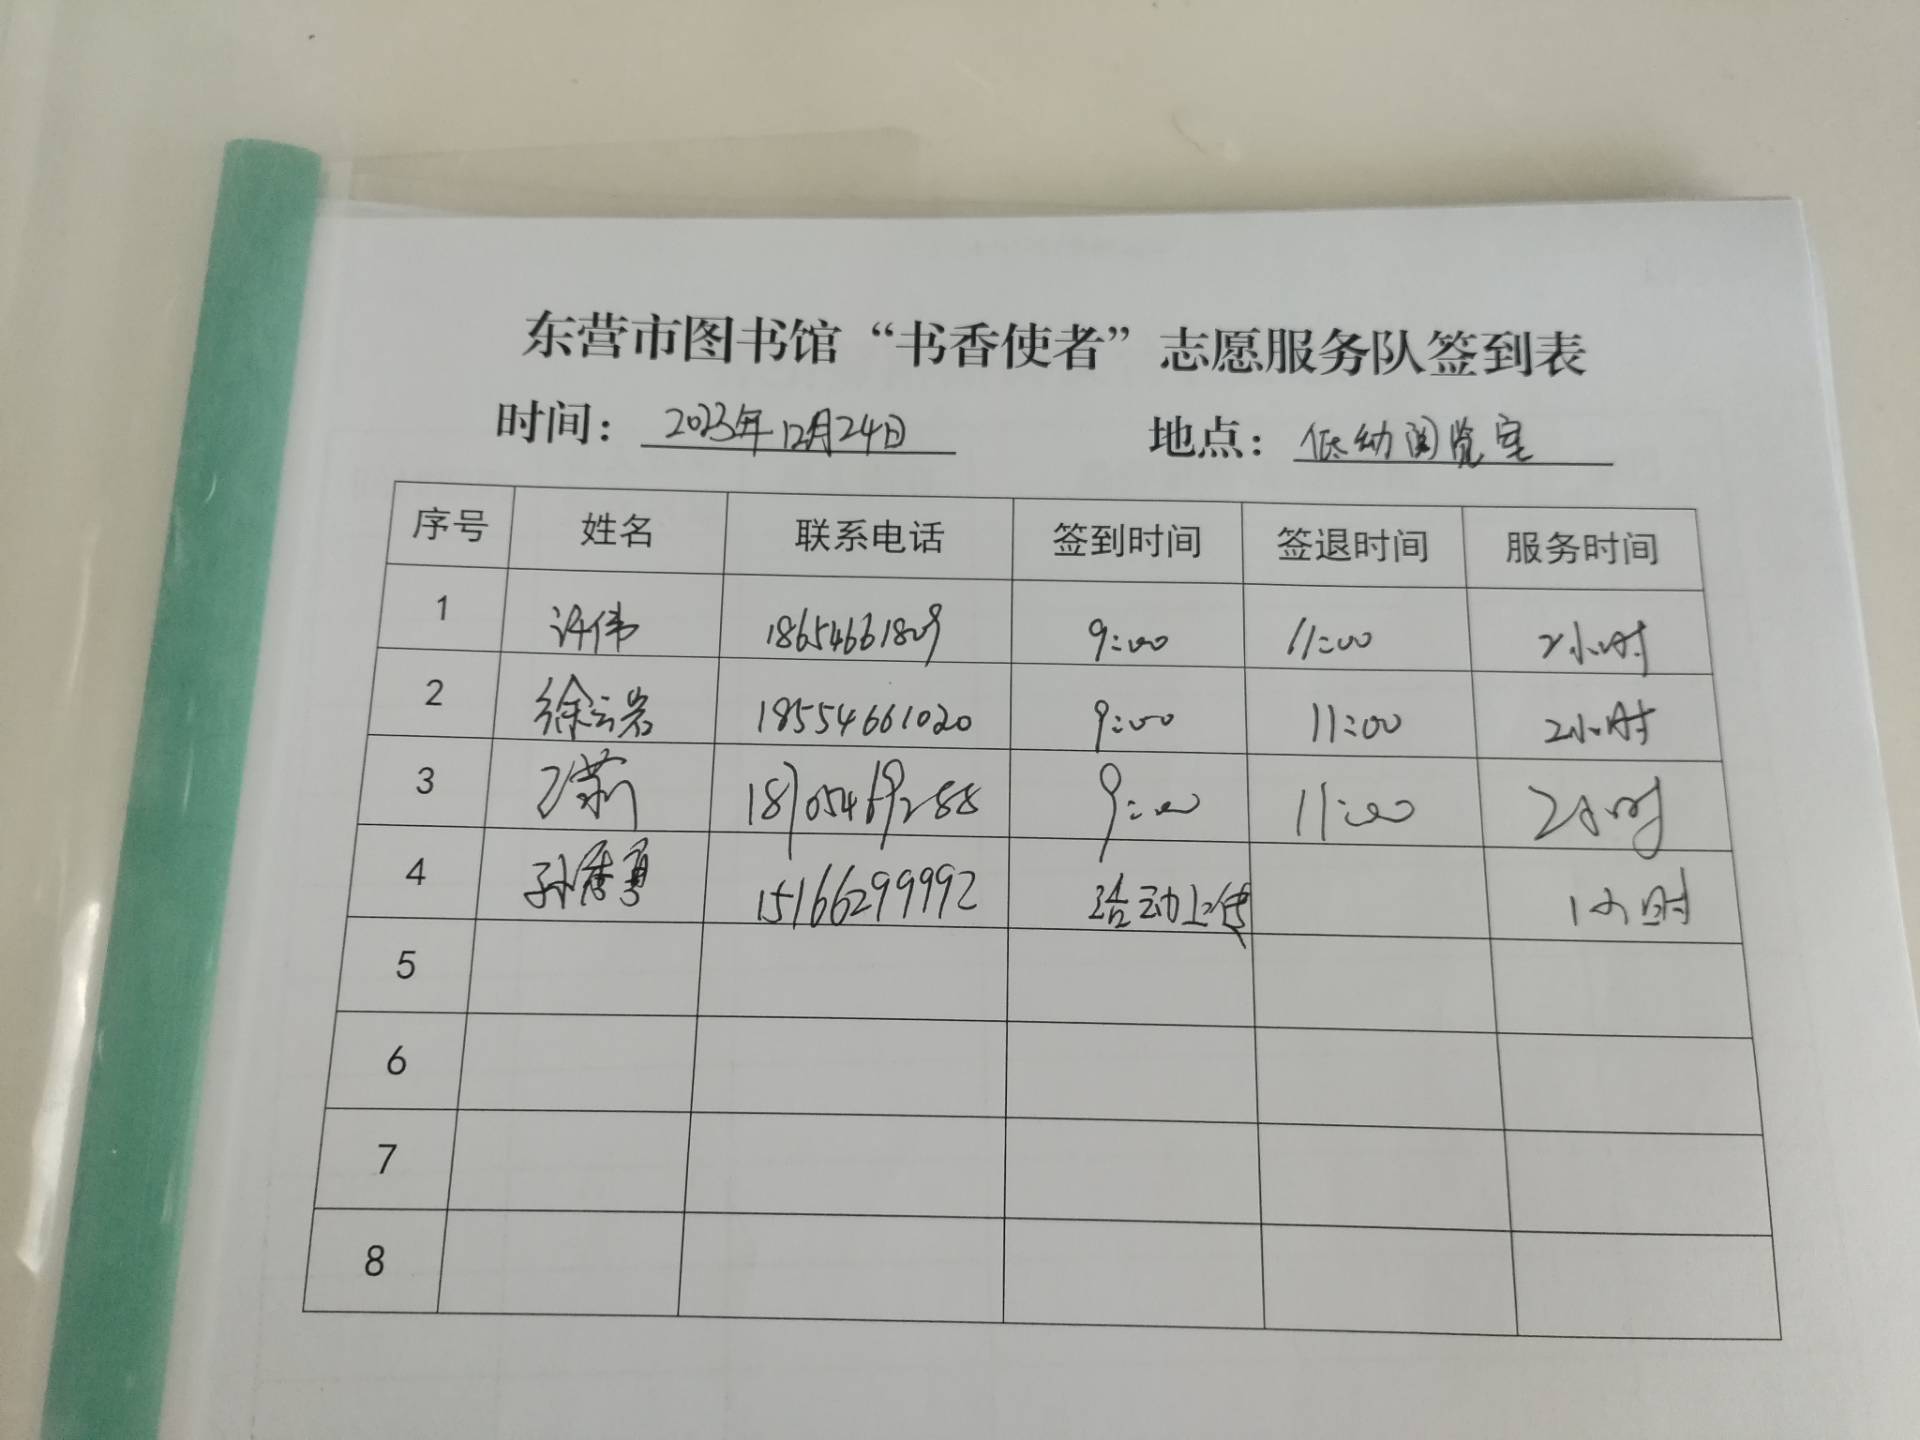 东营市图书馆“书香使者”志愿服务队签到表
时间：2023年12月24日 地点：低幼阅览室
序号 姓名 联系电话 签到时间 签退时间 服务时间
1 许伟 18654661809 9:00 11:00 2小时
2 徐云岩 18554661020 9:00 11:00 2小时
3 9:00 11:00 2小时
4 孙秀勇 15166299992 活动上传 1小时
5
6
7
8